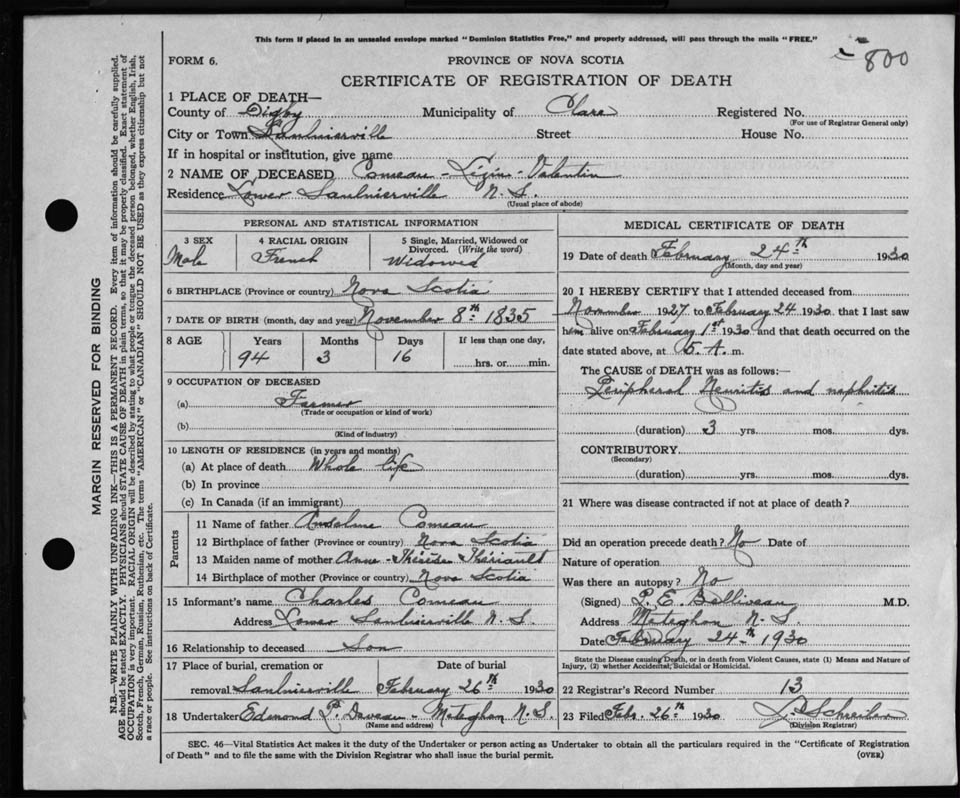 This form if placed in an unsealed envelope marked "Dominion Statistics Free," and properly addressed, will pass through the mails "FREE."
800
FORM 6.
PROVINCE OF NOVA SCOTIA
CERTIFICATE OF REGISTRATION OF DEATH
1 PLACE OF DEATH—
County of Digby Municipality of Clare Registered No.
(For use of Registrar General only)
City or Town Saulnierville Street House No.
If in hospital or institution, give name
2 NAME OF DECEASED Comeau - Lézin - Valentin
Residence Lower Saulnierville N. S.
(Usual place of abode)
PERSONAL AND STATISTICAL INFORMATION
3 SEX 4 RACIAL ORIGIN 5 Single, Married, Widowed or Divorced. (Write the word)
Male French Widowed
6 BIRTHPLACE (Province or country) Nova Scotia
7 DATE OF BIRTH (month, day and year) November 8th 1835
8 AGE Years Months Days If less than one day,
94 3 16 hrs. or min.
9 OCCUPATION OF DECEASED
(a) Farmer
(Trade or occupation or kind of work)
(b)
(Kind of industry)
10 LENGTH OF RESIDENCE (in years and months)
(a) At place of death Whole life
(b) In province
(c) In Canada (if an immigrant)
Parents
11 Name of father Anselme Comeau
12 Birthplace of father (Province or country) Nova Scotia
13 Maiden name of mother Anne-Thérèse Thériault
14 Birthplace of mother (Province or country) Nova Scotia
15 Informant's name Charles Comeau
Address Lower Saulnierville N. S.
16 Relationship to deceased Son
17 Place of burial, cremation or Date of burial
removal Saulnierville February 26th 1930
18 Undertaker Edmond P. Deveau - Meteghan N. S.
(Name and address)
MEDICAL CERTIFICATE OF DEATH
19 Date of death February 24th 1930
(Month, day and year)
20 I HEREBY CERTIFY that I attended deceased from
November 1927 to February 24 1930. that I last saw
him alive on February 1st 1930 and that death occurred on the
date stated above, at 5 A. m.
The CAUSE of DEATH was as follows:—
Peripheral Neuritis and nephritis
(duration) 3 yrs. mos. dys.
CONTRIBUTORY
(Secondary)
(duration) yrs. mos. dys.
21 Where was disease contracted if not at place of death?
Did an operation precede death? No Date of
Nature of operation
Was there an autopsy? No
(Signed) P. E. Belliveau M.D.
Address Meteghan N. S.
Date February 24th 1930
State the Disease causing Death, or in death from Violent Causes, state (1) Means and Nature of
Injury, (2) whether Accidental, Suicidal or Homicidal.
22 Registrar's Record Number 13
23 Filed Feb. 26th 1930
(Division Registrar)
SEC. 46—Vital Statistics Act makes it the duty of the Undertaker or person acting as Undertaker to obtain all the particulars required in the "Certificate of Registration
of Death" and to file the same with the Division Registrar who shall issue the burial permit. (OVER)
MARGIN RESERVED FOR BINDING
N.B.—WRITE PLAINLY WITH UNFADING INK—THIS IS A PERMANENT RECORD. Every item of information should be carefully supplied.
AGE should be stated EXACTLY. PHYSICIANS should STATE CAUSE OF DEATH in plain terms, so that it may be properly classified. Exact statement of
OCCUPATION is very important. RACIAL ORIGIN will be described by stating to what people or tongue the deceased person belonged, whether English, Irish,
Scotch, French, German, Russian, Ruthenian, etc. The terms "AMERICAN" or "CANADIAN" SHOULD NOT BE USED as they express citizenship but not
a race or people. See instructions on back of Certificate.